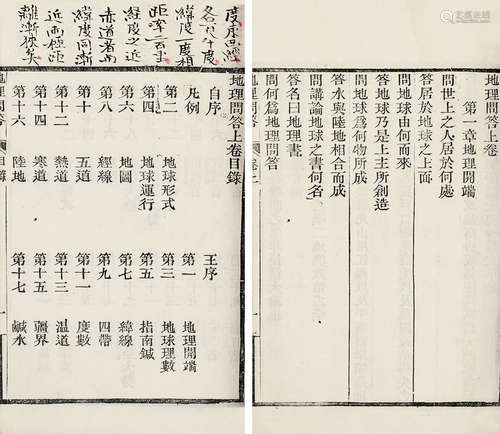 地理問答上卷
第一章地理開端
問世上之人居於何處
答居於地球之上面
問地球由何而來
答地球乃是上主所創造
問地球為何物所成
答水與陸地相合而成
問講論地球之書何名
答名曰地理書
問何為地理問答
地理問答
卷上
緯度一度相
經度之近
赤道者
緯度同漸
近兩極距
離漸狹矣
地理問答上卷目錄
自序 王序
凡例 第一 地理開端
第二 地球形式 第三 地球理數
第四 地球運行 第五 指南鍼
第六 地圖 第七 緯線
第八 經線 第九 四帶
第十 五道 第十一 度數
第十二 熱道 第十三 溫道
第十四 寒道 第十五 疆界
第十六 陸地 第十七 鹹水
地理問答
目錄